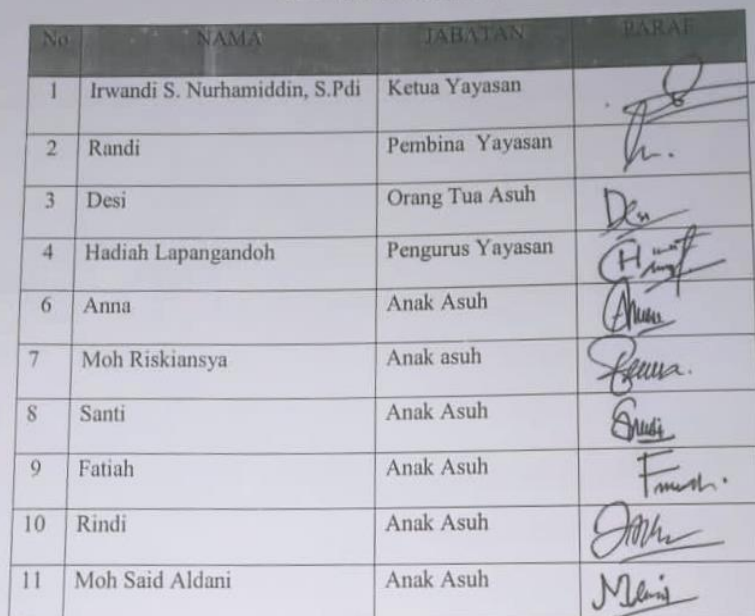 No NAMA JABATAN PARAF
1 Irwandi S. Nurhamiddin, S.Pdi Ketua Yayasan
2 Randi Pembina Yayasan
3 Desi Orang Tua Asuh Desi
4 Hadiah Lapangandoh Pengurus Yayasan
6 Anna Anak Asuh
7 Moh Riskiansya Anak asuh
8 Santi Anak Asuh
9 Fatiah Anak Asuh
10 Rindi Anak Asuh
11 Moh Said Aldani Anak Asuh